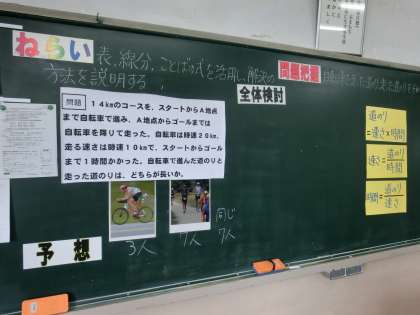 ねらい 表、線分、ことばの式を活用し、解決の
方法を説明する
問題把握
全体検討
問題 14kmのコースを、スタートからA地点
まで自転車で進み、A地点からゴールまでは
自転車を降りて走った。自転車は時速20km、
走る速さは時速10kmで、スタートからゴール
まで1時間かかった。自転車で進んだ道のりと
走った道のりは、どちらが長いか。
予想
3人
7人
同じ
7人
道のり
=速さ×時間
速さ=道のり/時間
時間=道のり/速さ